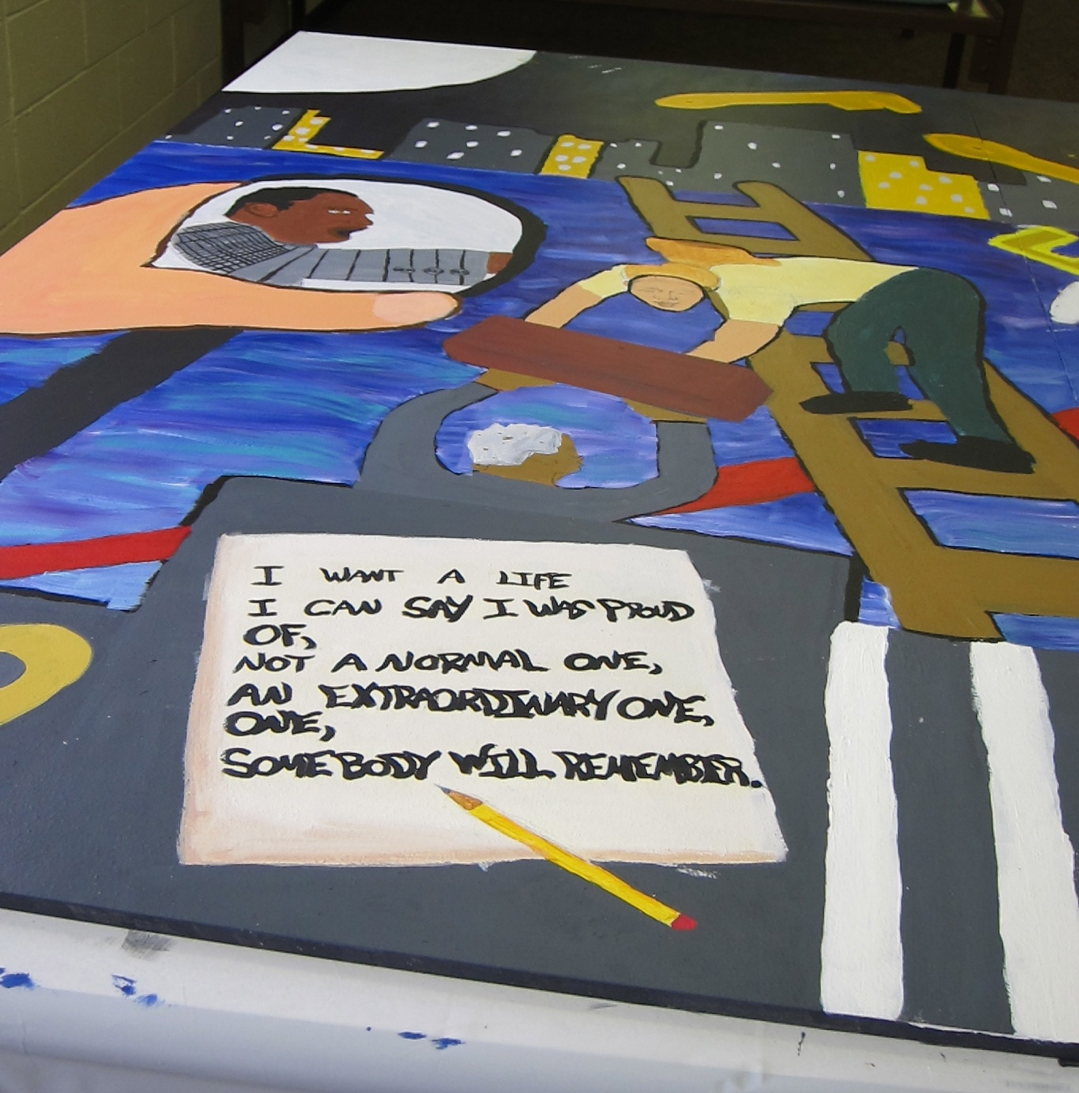 I WANT A LIFE
I CAN SAY I WAS PROUD
OF,
NOT A NORMAL ONE,
AN EXTRAORDINARY ONE,
ONE,
SOMEBODY WILL REMEMBER.